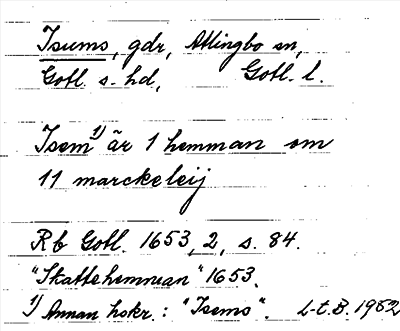 Isums, gdr, Atlingbo sn,
Gotl. s. hd, Gotl. l.
Isem 1) är 1 hemman om
11 marckeleij
Rb Gotl. 1653, 2, s. 84.
"Skattehemman" 1653.
1) Annan hskr.: "Isems". L-t.B. 1952